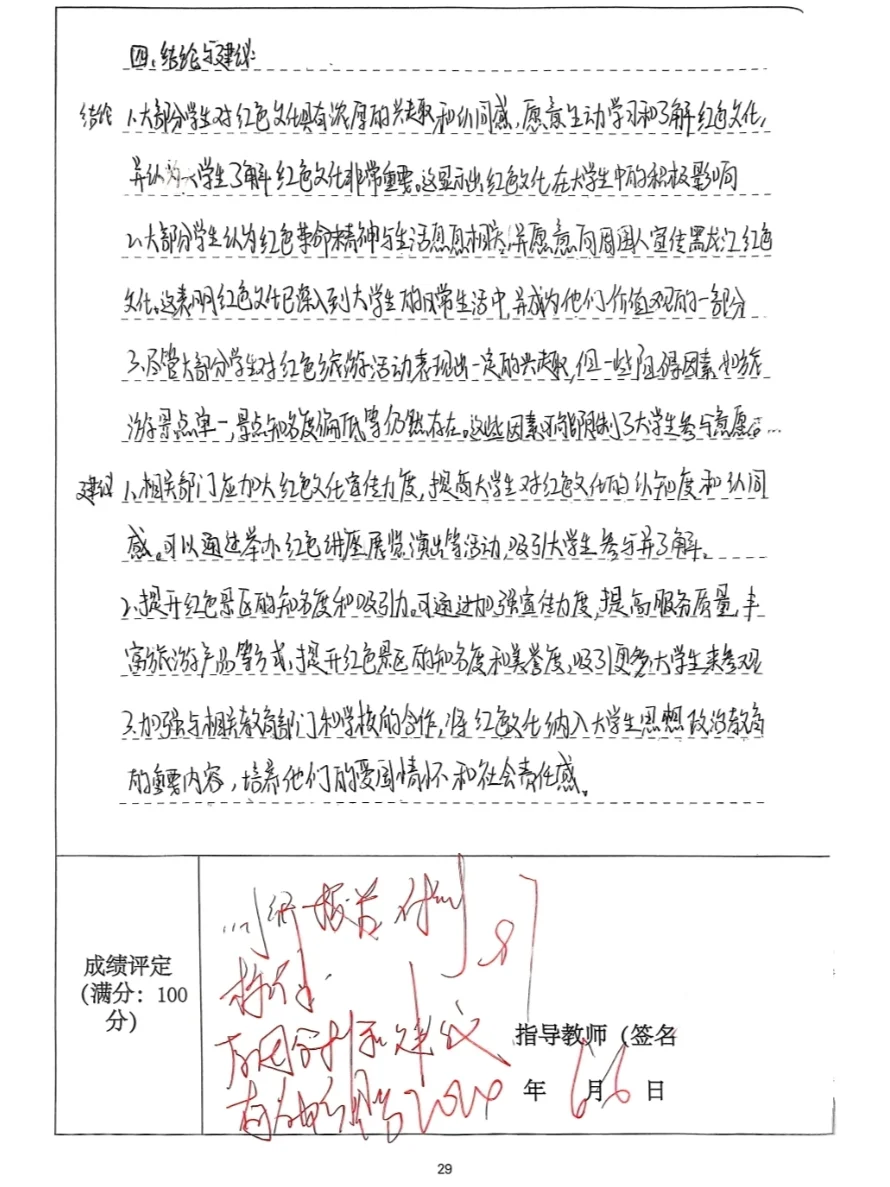 四、结论与建议:
结论 1.大部分学生对红色文化具有浓厚的兴趣和认同感，愿意主动学习和了解红色文化，
并认为大学生了解红色文化非常重要。这显示出红色文化在大学生中的积极影响
2.大部分学生认为红色革命精神与生活息息相关，并愿意向周围人宣传黑龙江红色
文化。这表明红色文化已深入到大学生的日常生活中，并成为他们价值观的一部分
3.尽管大部分学生对红色旅游活动表现出一定的兴趣，但一些阻碍因素如旅
游景点单一，景点知名度偏低等仍然存在。这些因素可能限制了大学生参与意愿。…
建议 1.相关部门应加大红色文化宣传力度，提高大学生对红色文化的认知度和认同
感。可以通过举办红色讲座、展览、演出等活动，吸引大学生参与并了解。
2.提升红色景区的知名度和吸引力。可通过加强宣传力度，提高服务质量，丰
富旅游产品等方式，提升红色景区的知名度和美誉度，吸引更多大学生来参观
3.加强与相关教育部门和学校的合作，将红色文化纳入大学生思想政治教育
的重要内容，培养他们的爱国情怀和社会责任感。
成绩评定
（满分：100
分）
报告
和建议
指导教师（签名
2024 年 6月6日
29